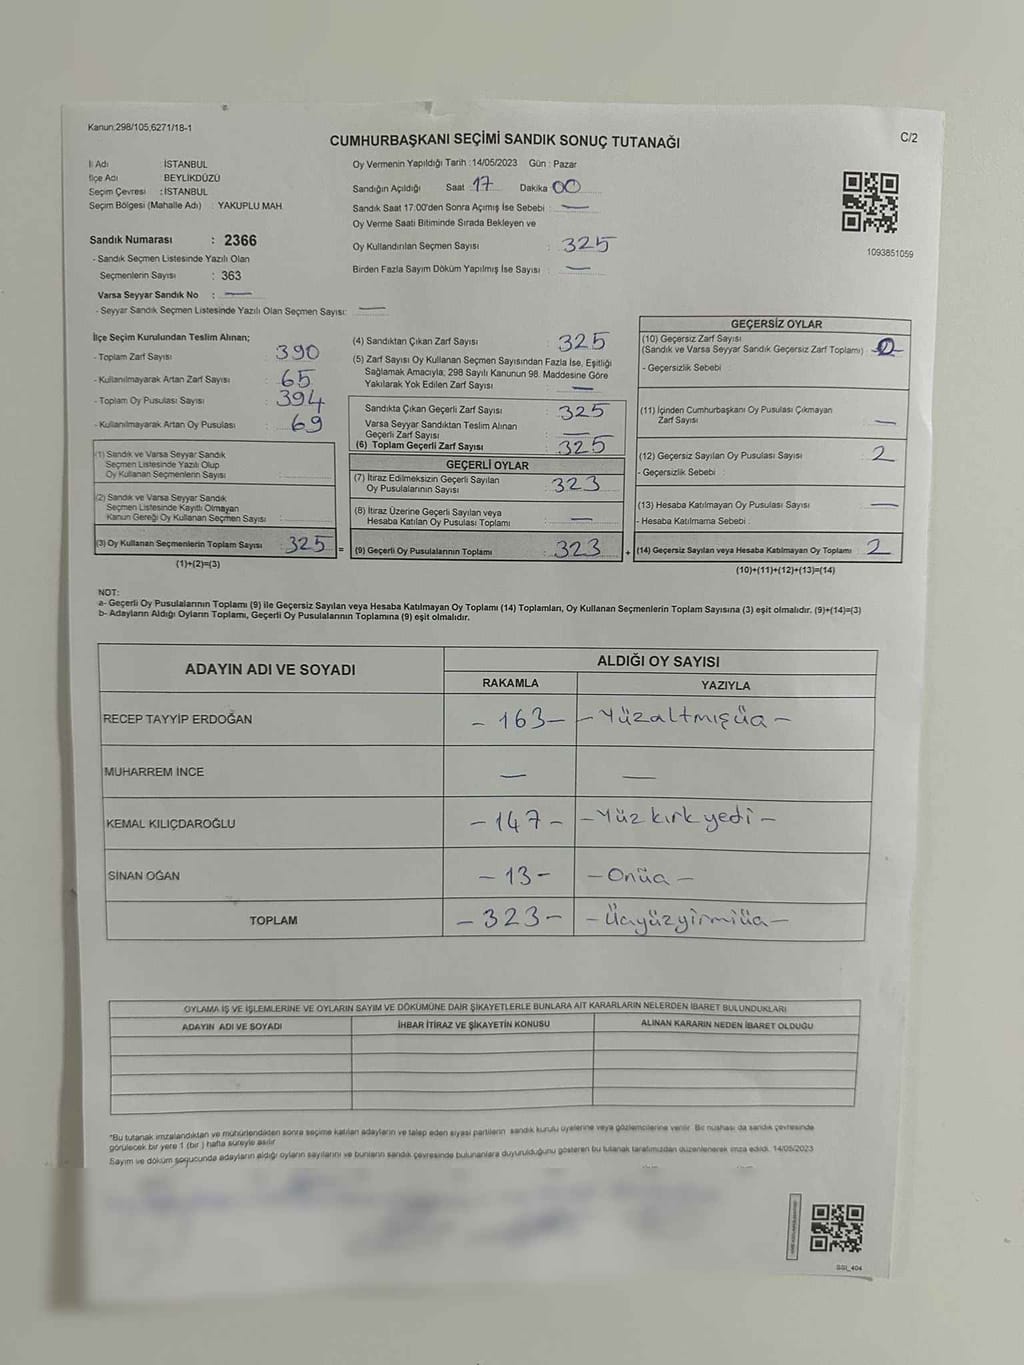 Kanun,298/105,6271/18-1
CUMHURBAŞKANI SEÇİMİ SANDIK SONUÇ TUTANAĞI
C/2
İl Adı İSTANBUL
İlçe Adı BEYLİKDÜZÜ
Seçim Çevresi : İSTANBUL
Seçim Bölgesi (Mahalle Adı) : YAKUPLU MAH.
Sandık Numarası : 2366
- Sandık Seçmen Listesinde Yazılı Olan
Seçmenlerin Sayısı : 363
Varsa Seyyar Sandık No : —
- Seyyar Sandık Seçmen Listesinde Yazılı Olan Seçmen Sayısı: —
Oy Vermenin Yapıldığı Tarih : 14/05/2023 Gün : Pazar
Sandığın Açıldığı Saat 17 Dakika 00
Sandık Saat 17:00'den Sonra Açımış İse Sebebi : —
Oy Verme Saati Bitiminde Sırada Bekleyen ve
Oy Kullandırılan Seçmen Sayısı : 325
Birden Fazla Sayım Döküm Yapılmış İse Sayısı : —
1093851059
İlçe Seçim Kurulundan Teslim Alınan;
- Toplam Zarf Sayısı : 390
- Kullanılmayarak Artan Zarf Sayısı : 65
- Toplam Oy Pusulası Sayısı : 394
- Kullanılmayarak Artan Oy Pusulası : 69
(1) Sandık ve Varsa Seyyar Sandık
Seçmen Listesinde Yazılı Olup
Oy Kullanan Seçmenlerin Sayısı :
(2) Sandık ve Varsa Seyyar Sandık
Seçmen Listesinde Kayıtlı Olmayan
Kanun Gereği Oy Kullanan Seçmen Sayısı :
(3) Oy Kullanan Seçmenlerin Toplam Sayısı : 325 =
(1)+(2)=(3)
(4) Sandıktan Çıkan Zarf Sayısı : 325
(5) Zarf Sayısı Oy Kullanan Seçmen Sayısından Fazla İse, Eşitliği
Sağlamak Amacıyla; 298 Sayılı Kanunun 98. Maddesine Göre
Yakılarak Yok Edilen Zarf Sayısı : —
Sandıkta Çıkan Geçerli Zarf Sayısı : 325
Varsa Seyyar Sandıktan Teslim Alınan
Geçerli Zarf Sayısı : —
(6) Toplam Geçerli Zarf Sayısı : 325
GEÇERLİ OYLAR
(7) İtiraz Edilmeksizin Geçerli Sayılan
Oy Pusulalarının Sayısı : 323
(8) İtiraz Üzerine Geçerli Sayılan veya
Hesaba Katılan Oy Pusulası Toplamı : —
(9) Geçerli Oy Pusulalarının Toplamı : 323 +
GEÇERSİZ OYLAR
(10) Geçersiz Zarf Sayısı
(Sandık ve Varsa Seyyar Sandık Geçersiz Zarf Toplamı) :
- Geçersizlik Sebebi :
(11) İçinden Cumhurbaşkanı Oy Pusulası Çıkmayan
Zarf Sayısı : —
(12) Geçersiz Sayılan Oy Pusulası Sayısı : 2
- Geçersizlik Sebebi :
(13) Hesaba Katılmayan Oy Pusulası Sayısı : —
- Hesaba Katılmama Sebebi :
(14) Geçersiz Sayılan veya Hesaba Katılmayan Oy Toplamı : 2
(10)+(11)+(12)+(13)=(14)
NOT:
a- Geçerli Oy Pusulalarının Toplamı (9) ile Geçersiz Sayılan veya Hesaba Katılmayan Oy Toplamı (14) Toplamları, Oy Kullanan Seçmenlerin Toplam Sayısına (3) eşit olmalıdır. (9)+(14)=(3)
b- Adayların Aldığı Oyların Toplamı, Geçerli Oy Pusulalarının Toplamına (9) eşit olmalıdır.
ADAYIN ADI VE SOYADI ALDIĞI OY SAYISI
RAKAMLA YAZIYLA
RECEP TAYYİP ERDOĞAN - 163 - - Yüzaltmışüç -
MUHARREM İNCE — —
KEMAL KILIÇDAROĞLU - 147 - - Yüz kırk yedi -
SİNAN OĞAN - 13 - - Onüç -
TOPLAM - 323 - - Üçyüzyirmiüç -
OYLAMA İŞ VE İŞLEMLERİNE VE OYLARIN SAYIM VE DÖKÜMÜNE DAİR ŞİKAYETLERLE BUNLARA AİT KARARLARIN NELERDEN İBARET BULUNDUKLARI
ADAYIN ADI VE SOYADI İHBAR İTİRAZ VE ŞİKAYETİN KONUSU ALINAN KARARIN NEDEN İBARET OLDUĞU
*Bu tutanak imzalandıktan ve mühürlendikten sonra seçime katılan adayların ve talep eden siyasi partilerin sandık kurulu üyelerine veya gözlemcilerine verilir. Bir nüshası da sandık çevresinde
görülecek bir yere 1 (bir ) hafta süreyle asılır.
Sayım ve döküm sonucunda adayların aldığı oyların sayılarını ve bunların sandık çevresinde bulunanlara duyurulduğunu gösteren bu tutanak tarafımızdan düzenlenerek imza edildi. 14/05/2023
SSI_404